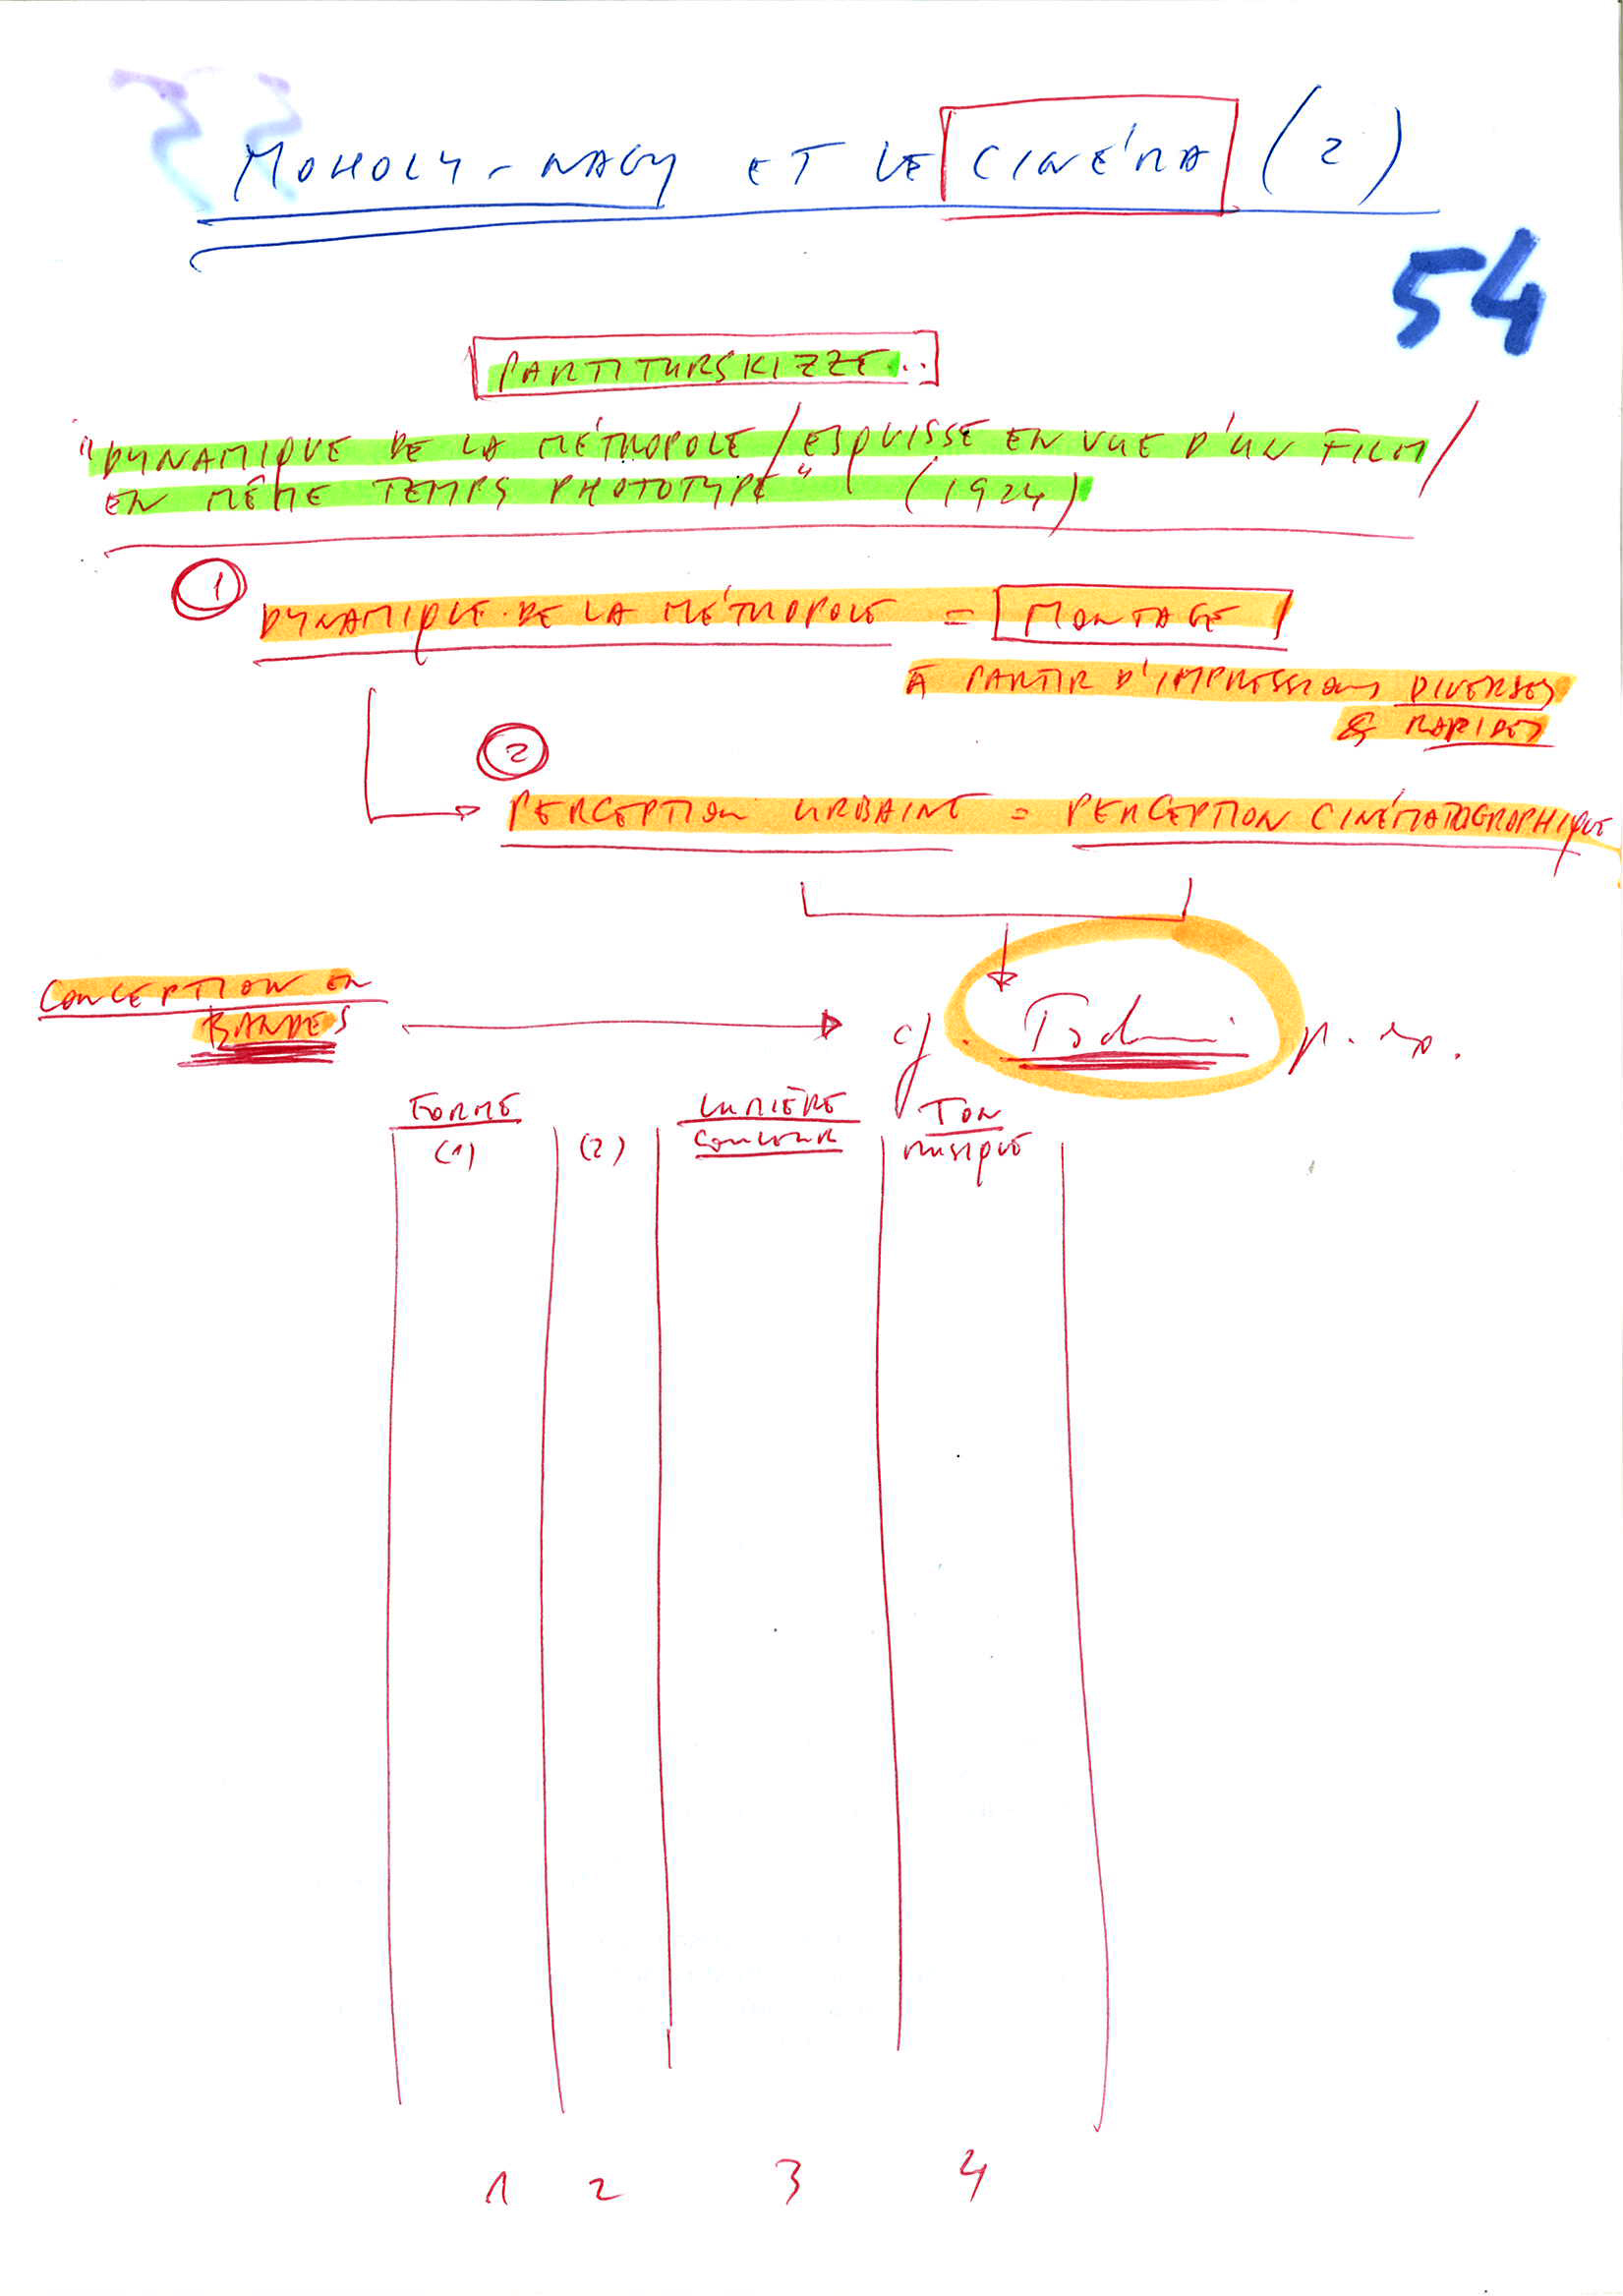 MOHOLY-NAGY ET LE CINÉMA (2)
54
PARTITURSKIZZE...
"DYNAMIQUE DE LA MÉTROPOLE / ESQUISSE EN VUE D'UN FILM /
EN MÊME TEMPS PHOTOTYPE" (1924)
1
DYNAMIQUE DE LA MÉTROPOLE = MONTAGE
À PARTIR D'IMPRESSIONS DIVERSES
& RAPIDES
2
PERCEPTION URBAINE = PERCEPTION CINÉMATOGRAPHIQUE
CONCEPTION EN
BANDES
cf. p. ex.
FORME LUMIÈRE TON
(1) (2) COULEUR MUSIQUE
1 2 3 4